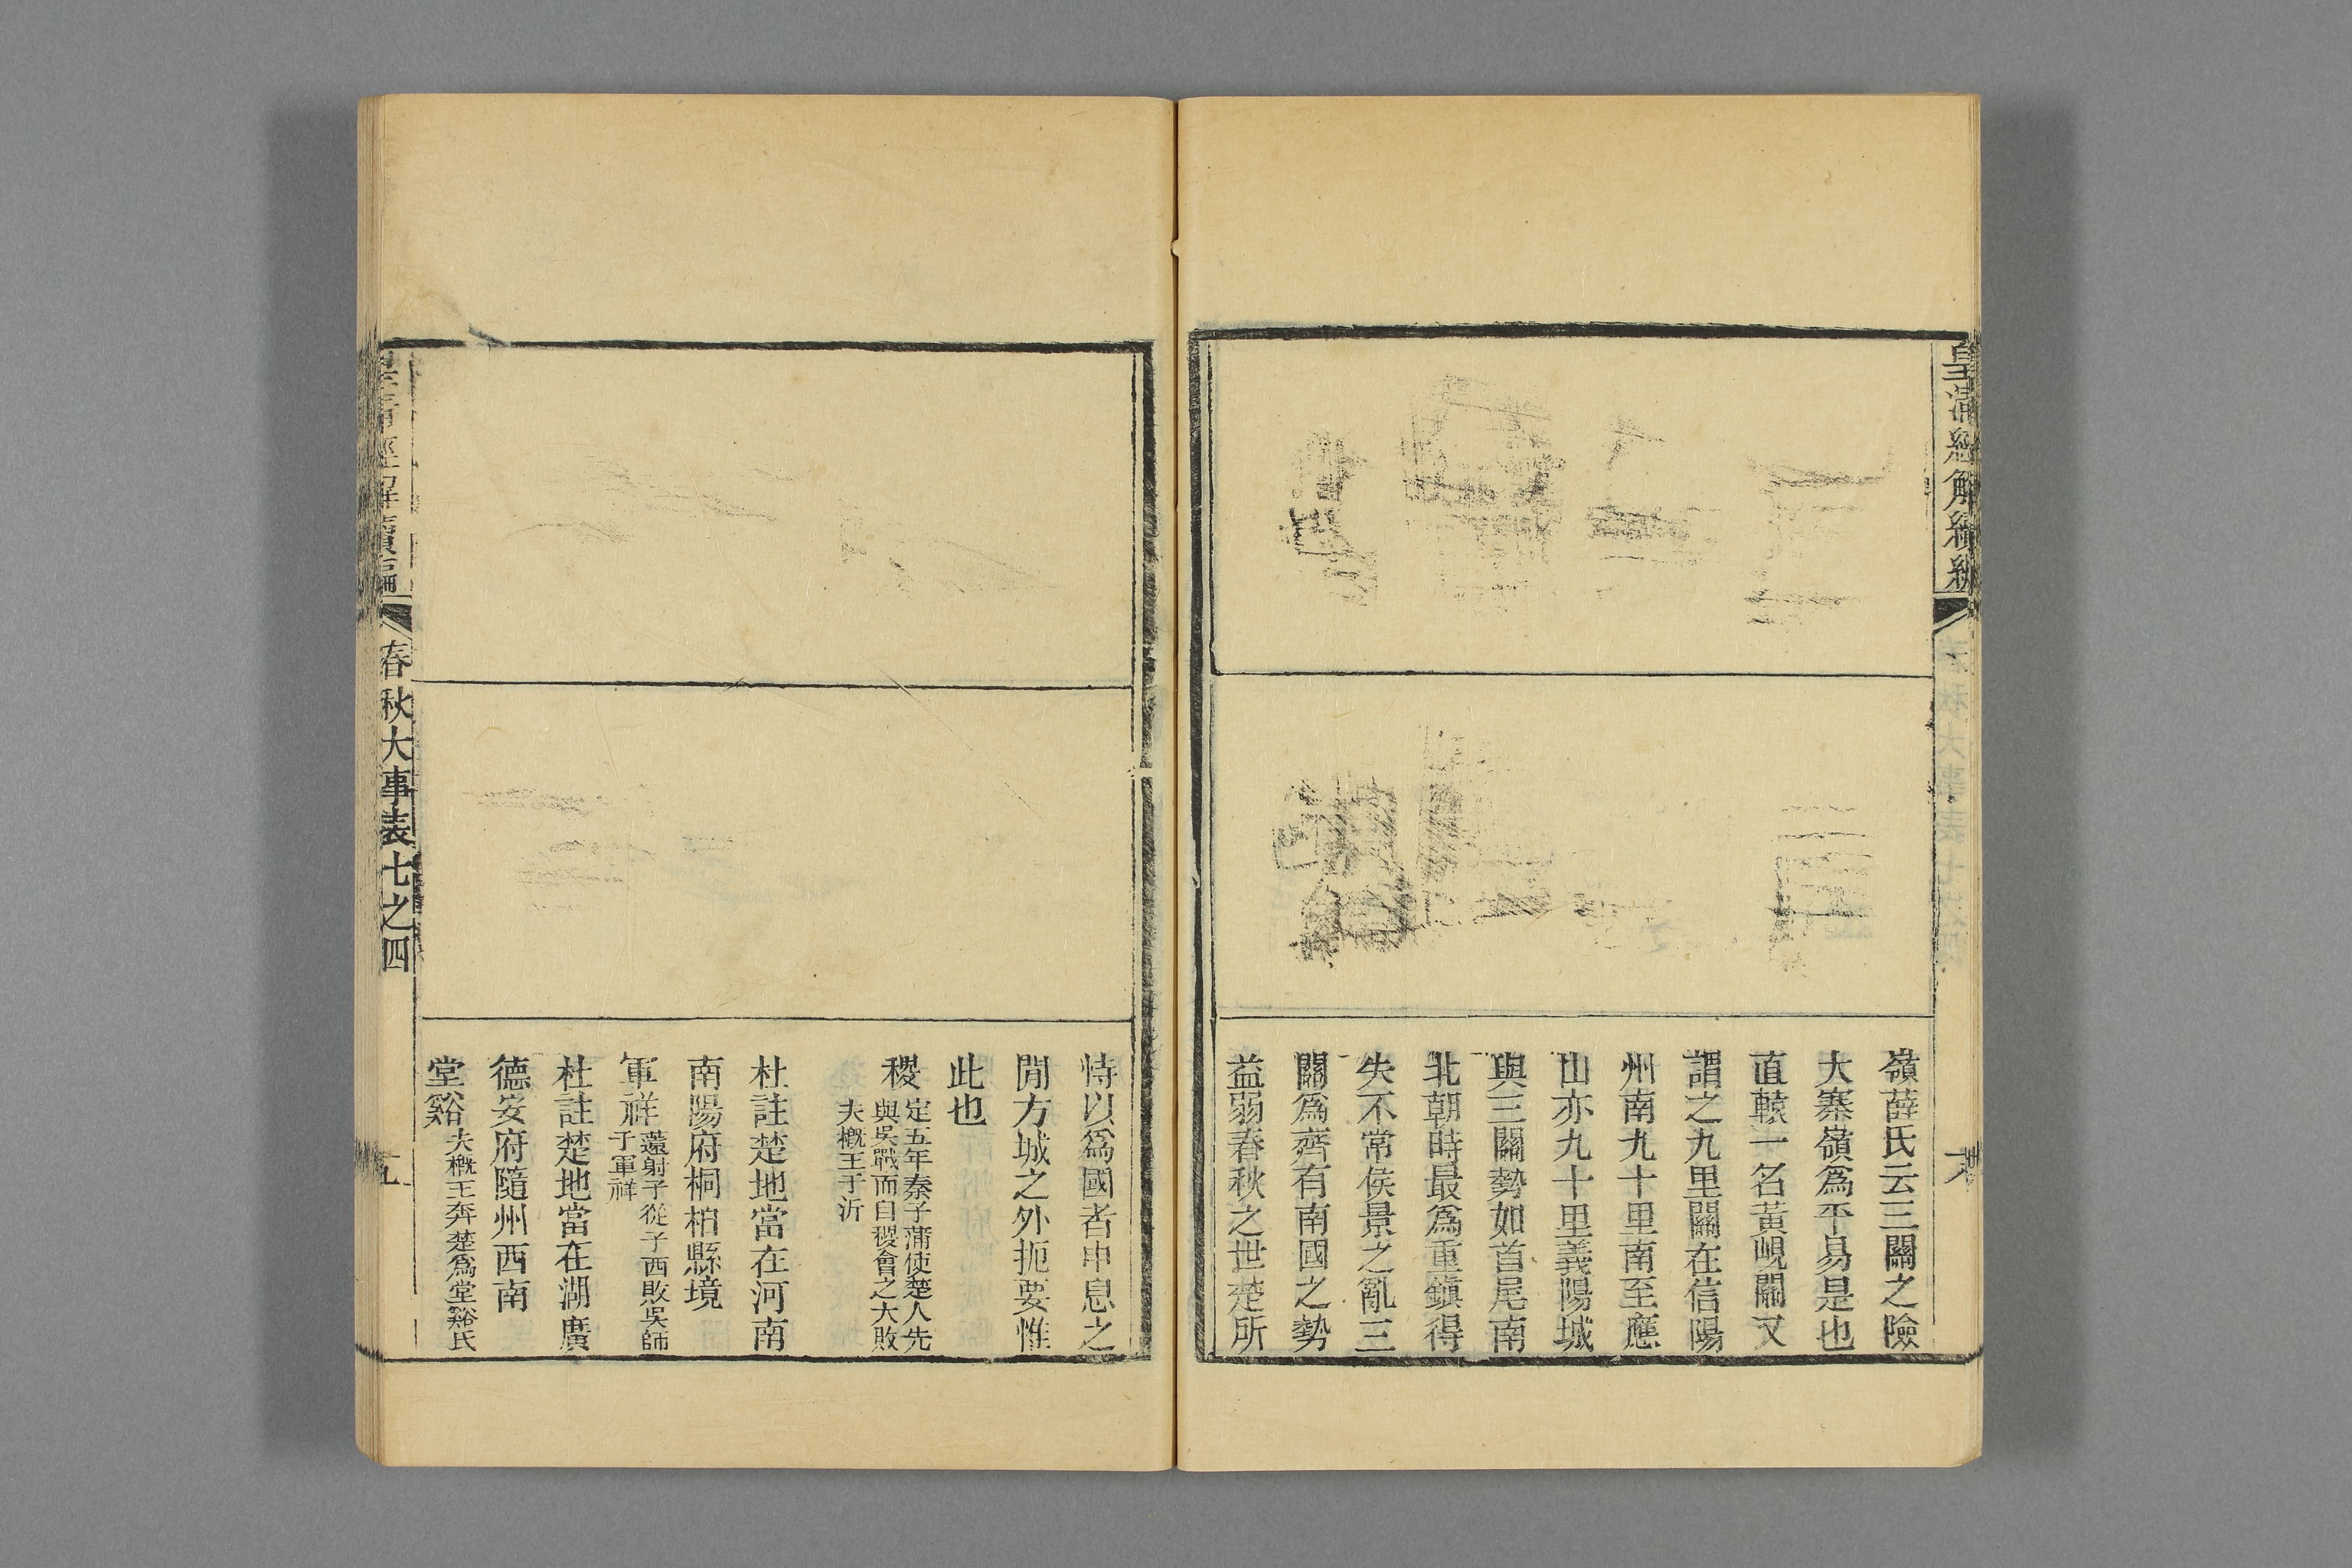 皇清經解續編
嶺薛氏云三關之險
大寨嶺爲平易是也
直轅一名黃峴關又
謂之九里關在信陽
州南九十里南至應
山亦九十里義陽城
與三關勢如首尾南
北朝時最爲重鎮得
失不常侯景之亂三
關爲齊有南國之勢
益弱春秋之世楚所
恃以爲國者申息之
閒方城之外扼要惟
此也
稷定五年秦子蒲使楚人先
與吳戰而自稷會之大敗
夫槪王于沂
杜註楚地當在河南
南陽府桐柏縣境
軍祥薳射子從子西敗吳師
于軍祥
杜註楚地當在湖廣
德安府隨州西南
堂谿夫槪王奔楚爲堂谿氏
皇清經解續編
春秋大事表七之四
五